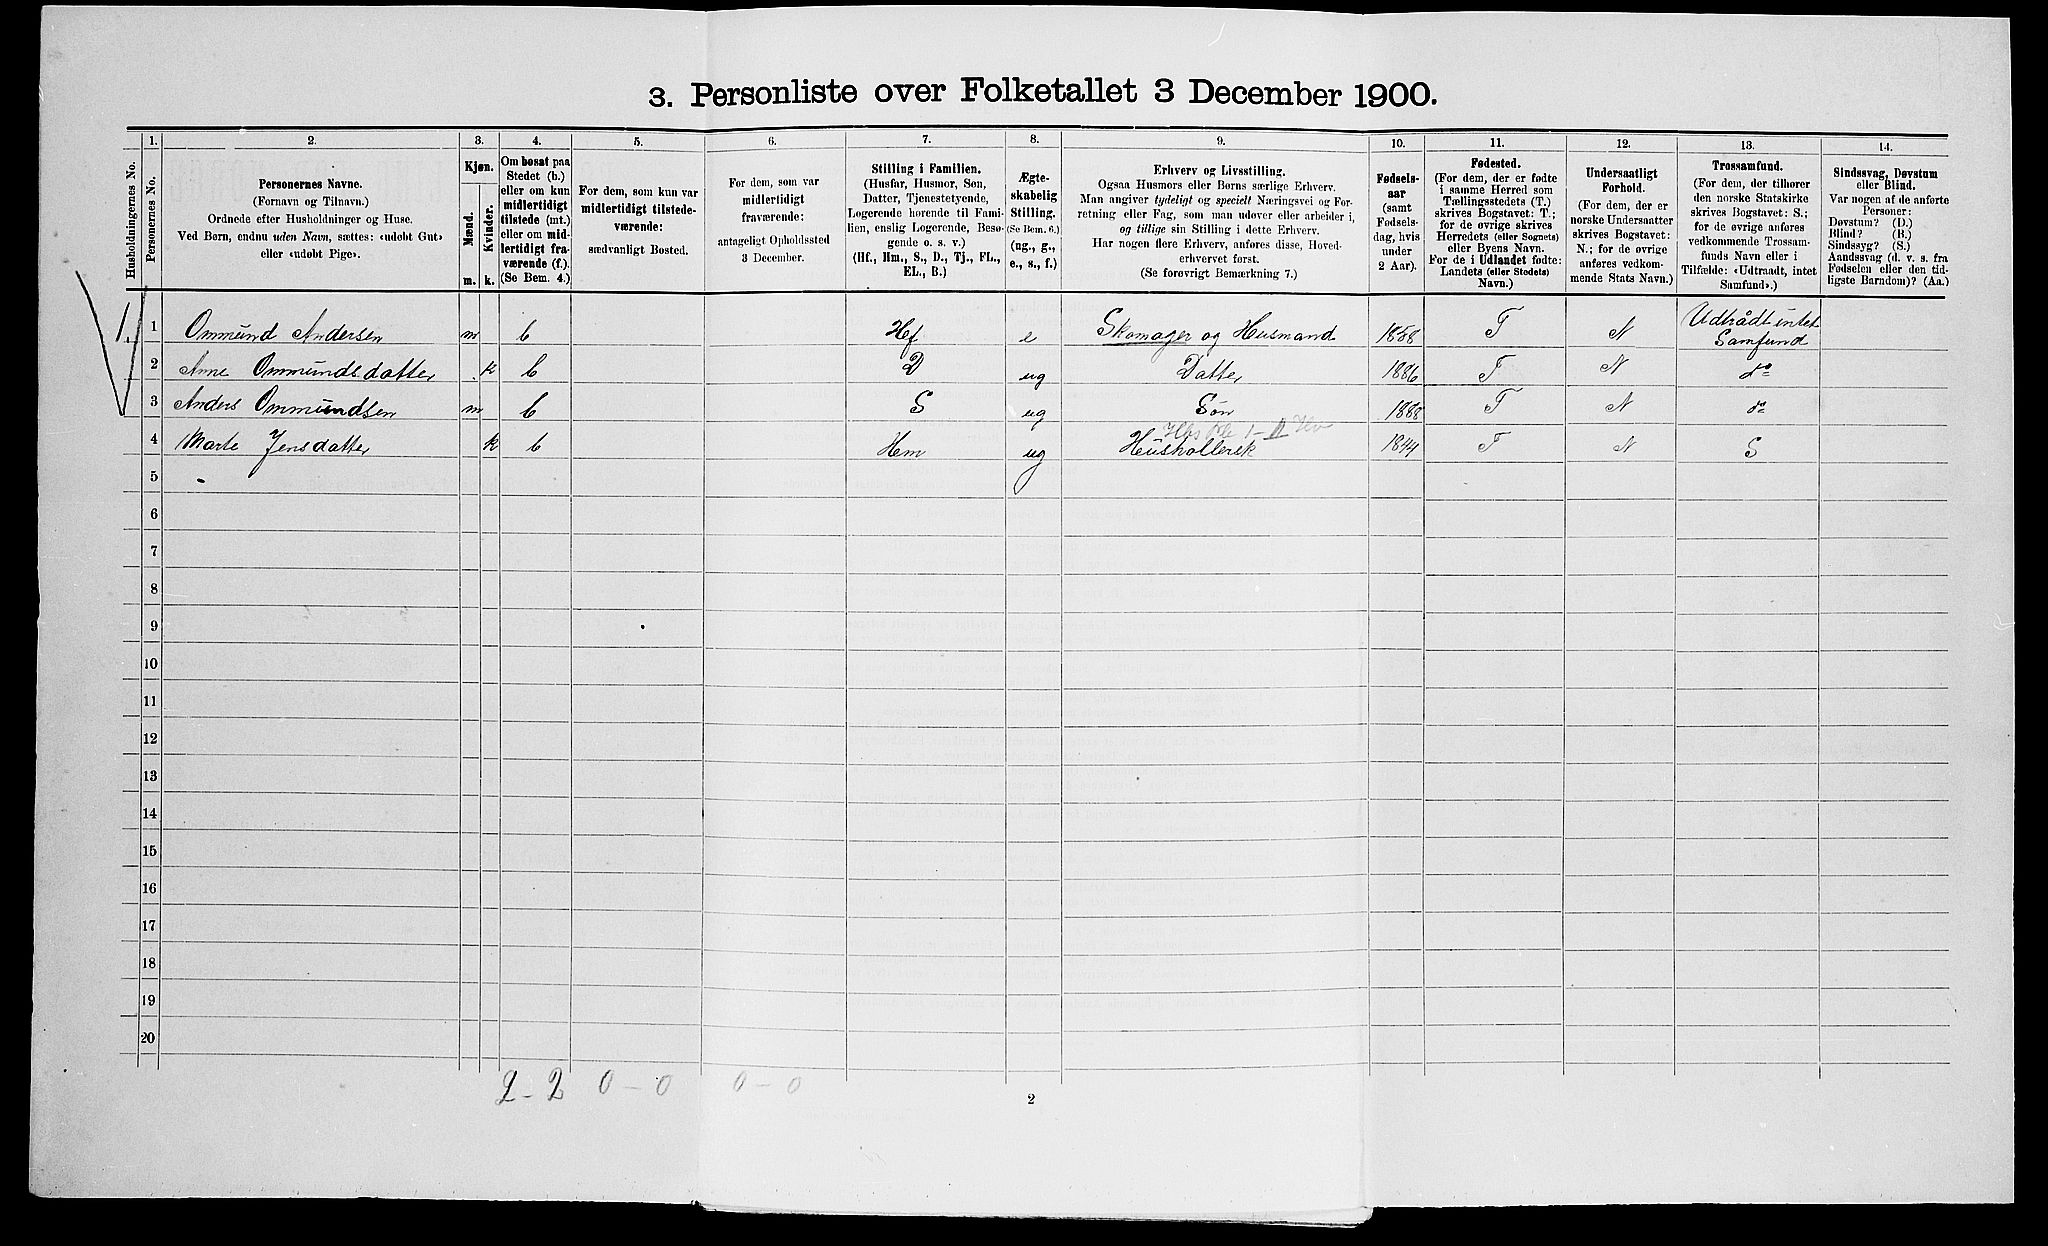 3. Personliste over Folketallet 3 December 1900.
1. 2. 3. 4. 5. 6. 7. 8. 9. 10. 11. 12. 13. 14.
Husholdningernes No.
Personernes No.
Personernes Navne.
(Fornavn og Tilnavn.)
Ordnede efter Husholdninger og Huse.
Ved Børn, endnu uden Navn, sættes: «udøbt Gut»
eller «udøbt Pige».
Kjøn.
Mænd.
Kvinder.
m. k.
Om bosat paa
Stedet (b.)
eller om kun
midlertidigt
tilstede (mt.)
eller om mid-
lertidigt fra-
værende (f.).
(Se Bem. 4.)
For dem, som kun var
midlertidigt tilstede-
værende:
sædvanligt Bosted.
For dem, som var
midlertidigt
fraværende:
antageligt Opholdssted
3 December.
Stilling i Familien.
(Husfar, Husmor, Søn,
Datter, Tjenestetyende,
Logerende hørende til Fami-
lien, enslig Logerende, Besø-
gende o. s. v.)
(Hf., Hm., S., D., Tj., FL.,
EL., B.)
Ægte-
skabelig
Stilling.
(Se Bem. 6.)
(ug., g.,
e., s., f.)
Erhverv og Livsstilling.
Ogsaa Husmors eller Børns særlige Erhverv.
Man angiver tydeligt og specielt Næringsvei og For-
retning eller Fag, som man udøver eller arbeider i,
og tillige sin Stilling i dette Erhverv.
Har nogen flere Erhverv, anføres disse, Hoved-
erhvervet først.
(Se forøvrigt Bemærkning 7.)
Fødsels-
aar
(samt
Fødsels-
dag, hvis
under
2 Aar).
Fødested.
(For dem, der er fødte
i samme Herred som
Tællingsstedets (T.)
skrives Bogstavet: T.;
for de øvrige skrives
Herredets (eller Sognets)
eller Byens Navn.
For de i Udlandet fødte:
Landets (eller Stedets)
Navn.)
Undersaatligt
Forhold.
(For dem, der er
norske Undersaatter
skrives Bogstavet:
N.; for de øvrige
anføres vedkom-
mende Stats Navn.)
Trossamfund.
(For dem, der tilhører
den norske Statskirke
skrives Bogstavet: S.;
for de øvrige anføres
vedkommende Trossam-
funds Navn eller i
Tilfælde: «Udtraadt, intet
Samfund».)
Sindssvag, Døvstum
eller Blind.
Var nogen af de anførte
Personer:
Døvstum? (D.)
Blind? (B.)
Sindssyg? (S.)
Aandssvag (d. v. s. fra
Fødselen eller den tid-
ligste Barndom)? (Aa.)
1. 1 Ommund Andersen m b Hf e Skomager og Husmand 1858 T N Udtrådt intet
Samfund
2 Anne Ommundsdatter k b D ug Datter 1886 T N do
3 Anders Ommundsen m b S ug Søn 1888 T N do
4 Marte Jensdatter k b Hm ug Husholdersk 1844 T N S
5
6
7
8
9
10
11
12
13
14
15
16
17
18
19
20
2 - 2 0 - 0 0 - 0
2